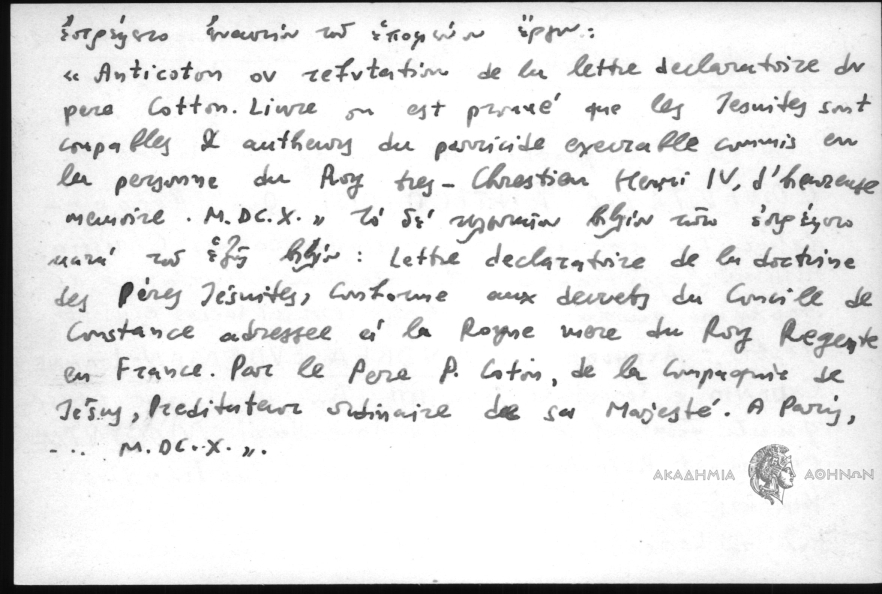 ἐστρέφετο ἐναντίον τοῦ ἑπομένου ἔργου:
« Anticoton ou refutation de la lettre declaratoire du
pere Cotton. Livre ou est prouué que les Jesuites sont
coupables & autheurs du parricide execrable commis en
la personne du Roy tres-Chrestien Henri IV, d'heureuse
memoire. M.DC.X. » Τὸ δὲ βιβλίον τοῦτο ἐστρέφετο
κατὰ τοῦ ἑξῆς βιβλίου: Lettre declaratoire de la doctrine
des Péres Jésuites, Conforme aux decrets du Concile de
Constance adressee à la Royne mere du Roy Regente
en France. Par le Pere P. Coton, de la Compagnie de
Jésus, Predicateur ordinaire de sa Majesté. A Paris,
... M.DC.X. ».
ΑΚΑΔΗΜΙΑ ΑΘΗΝΩΝ